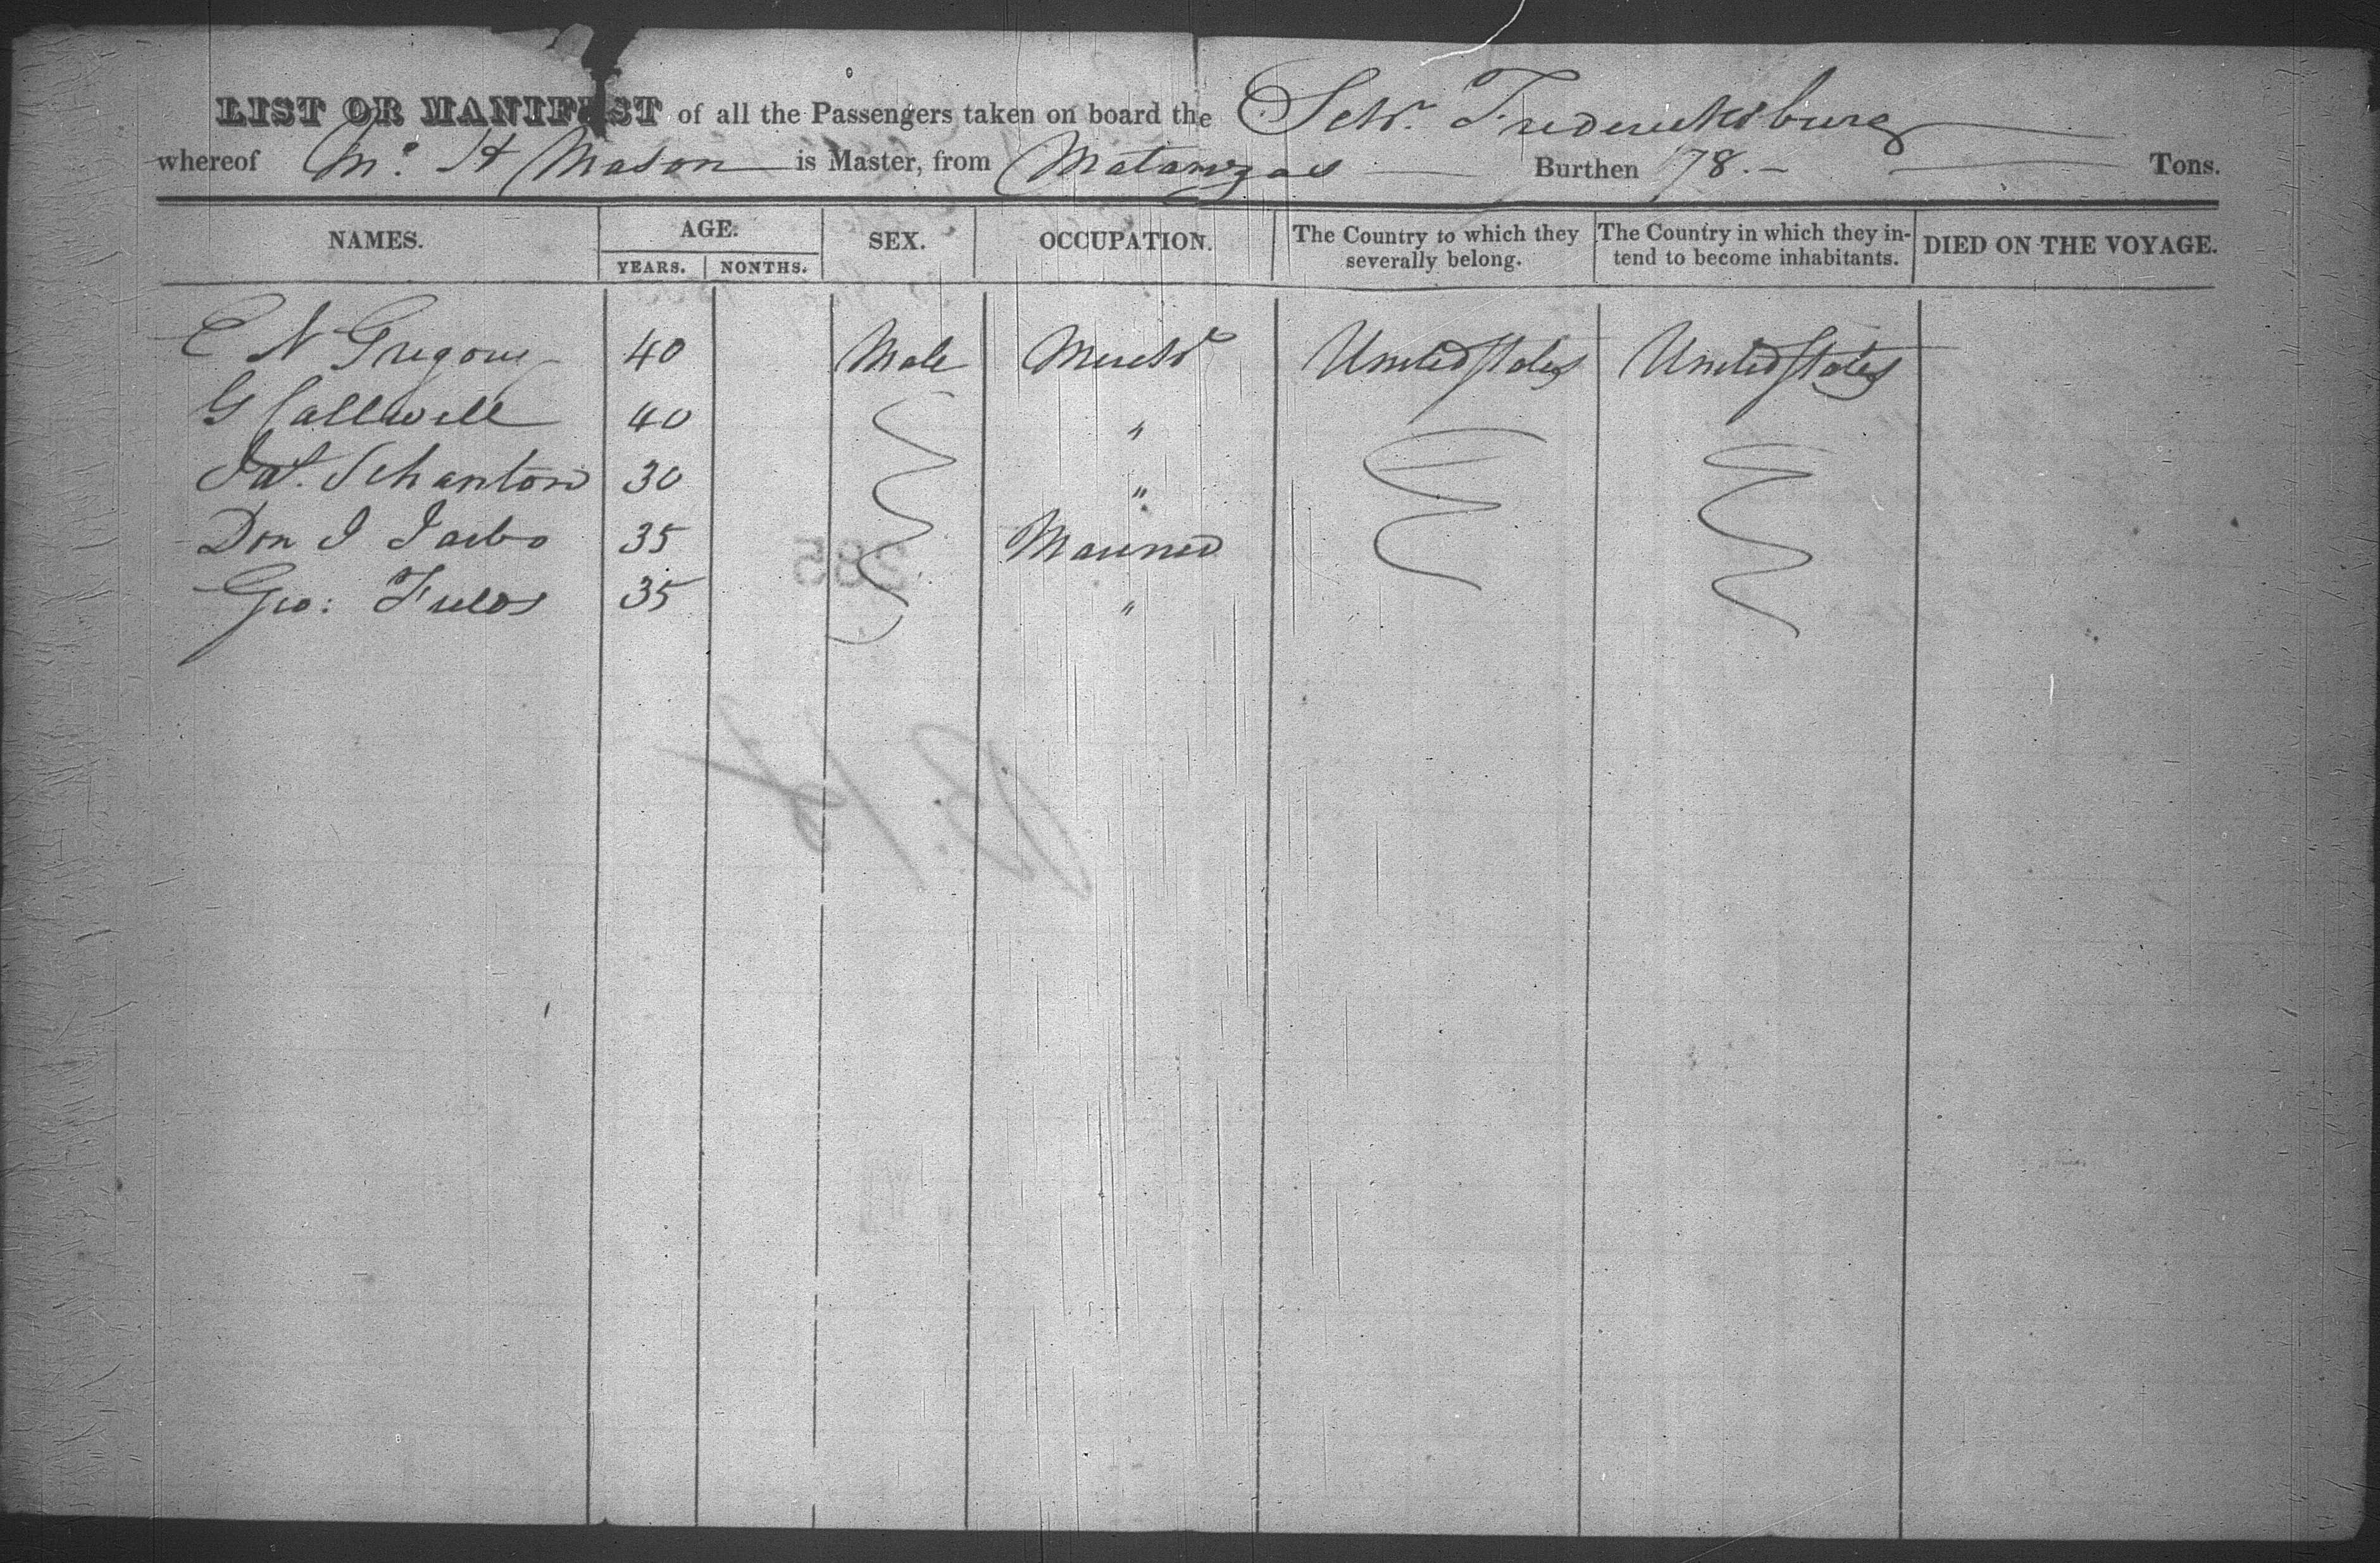 LIST OR MANIFEST of all the Passengers taken on board the Schr. Fredericksburg
whereof Wm. H Mason is Master, from Matanzas Burthen 78.- Tons.
NAMES. AGE. SEX. OCCUPATION. The Country to which they severally belong. The Country in which they in- tend to become inhabitants. DIED ON THE VOYAGE.
YEARS. NONTHS.
E N Gregory 40 Male Mercht United States United States
G Callwell 40 "
Jas. Schanton 30 "
Don J Jarbo 35 Marined
Geo: Fields 35 "
285